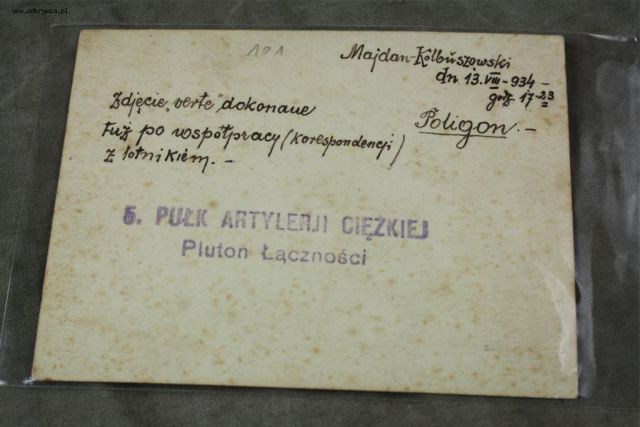 www.odkrywca.pl
101
Majdan-Kolbuszowski
dn 13.VIII-934-
godz 17-23
Zdjęcie „verte" dokonane
tuż po współpracy (korespondencji)
z lotnikiem. -
Poligon. -
5. PUŁK ARTYLERJI CIĘŻKIEJ
Pluton Łączności